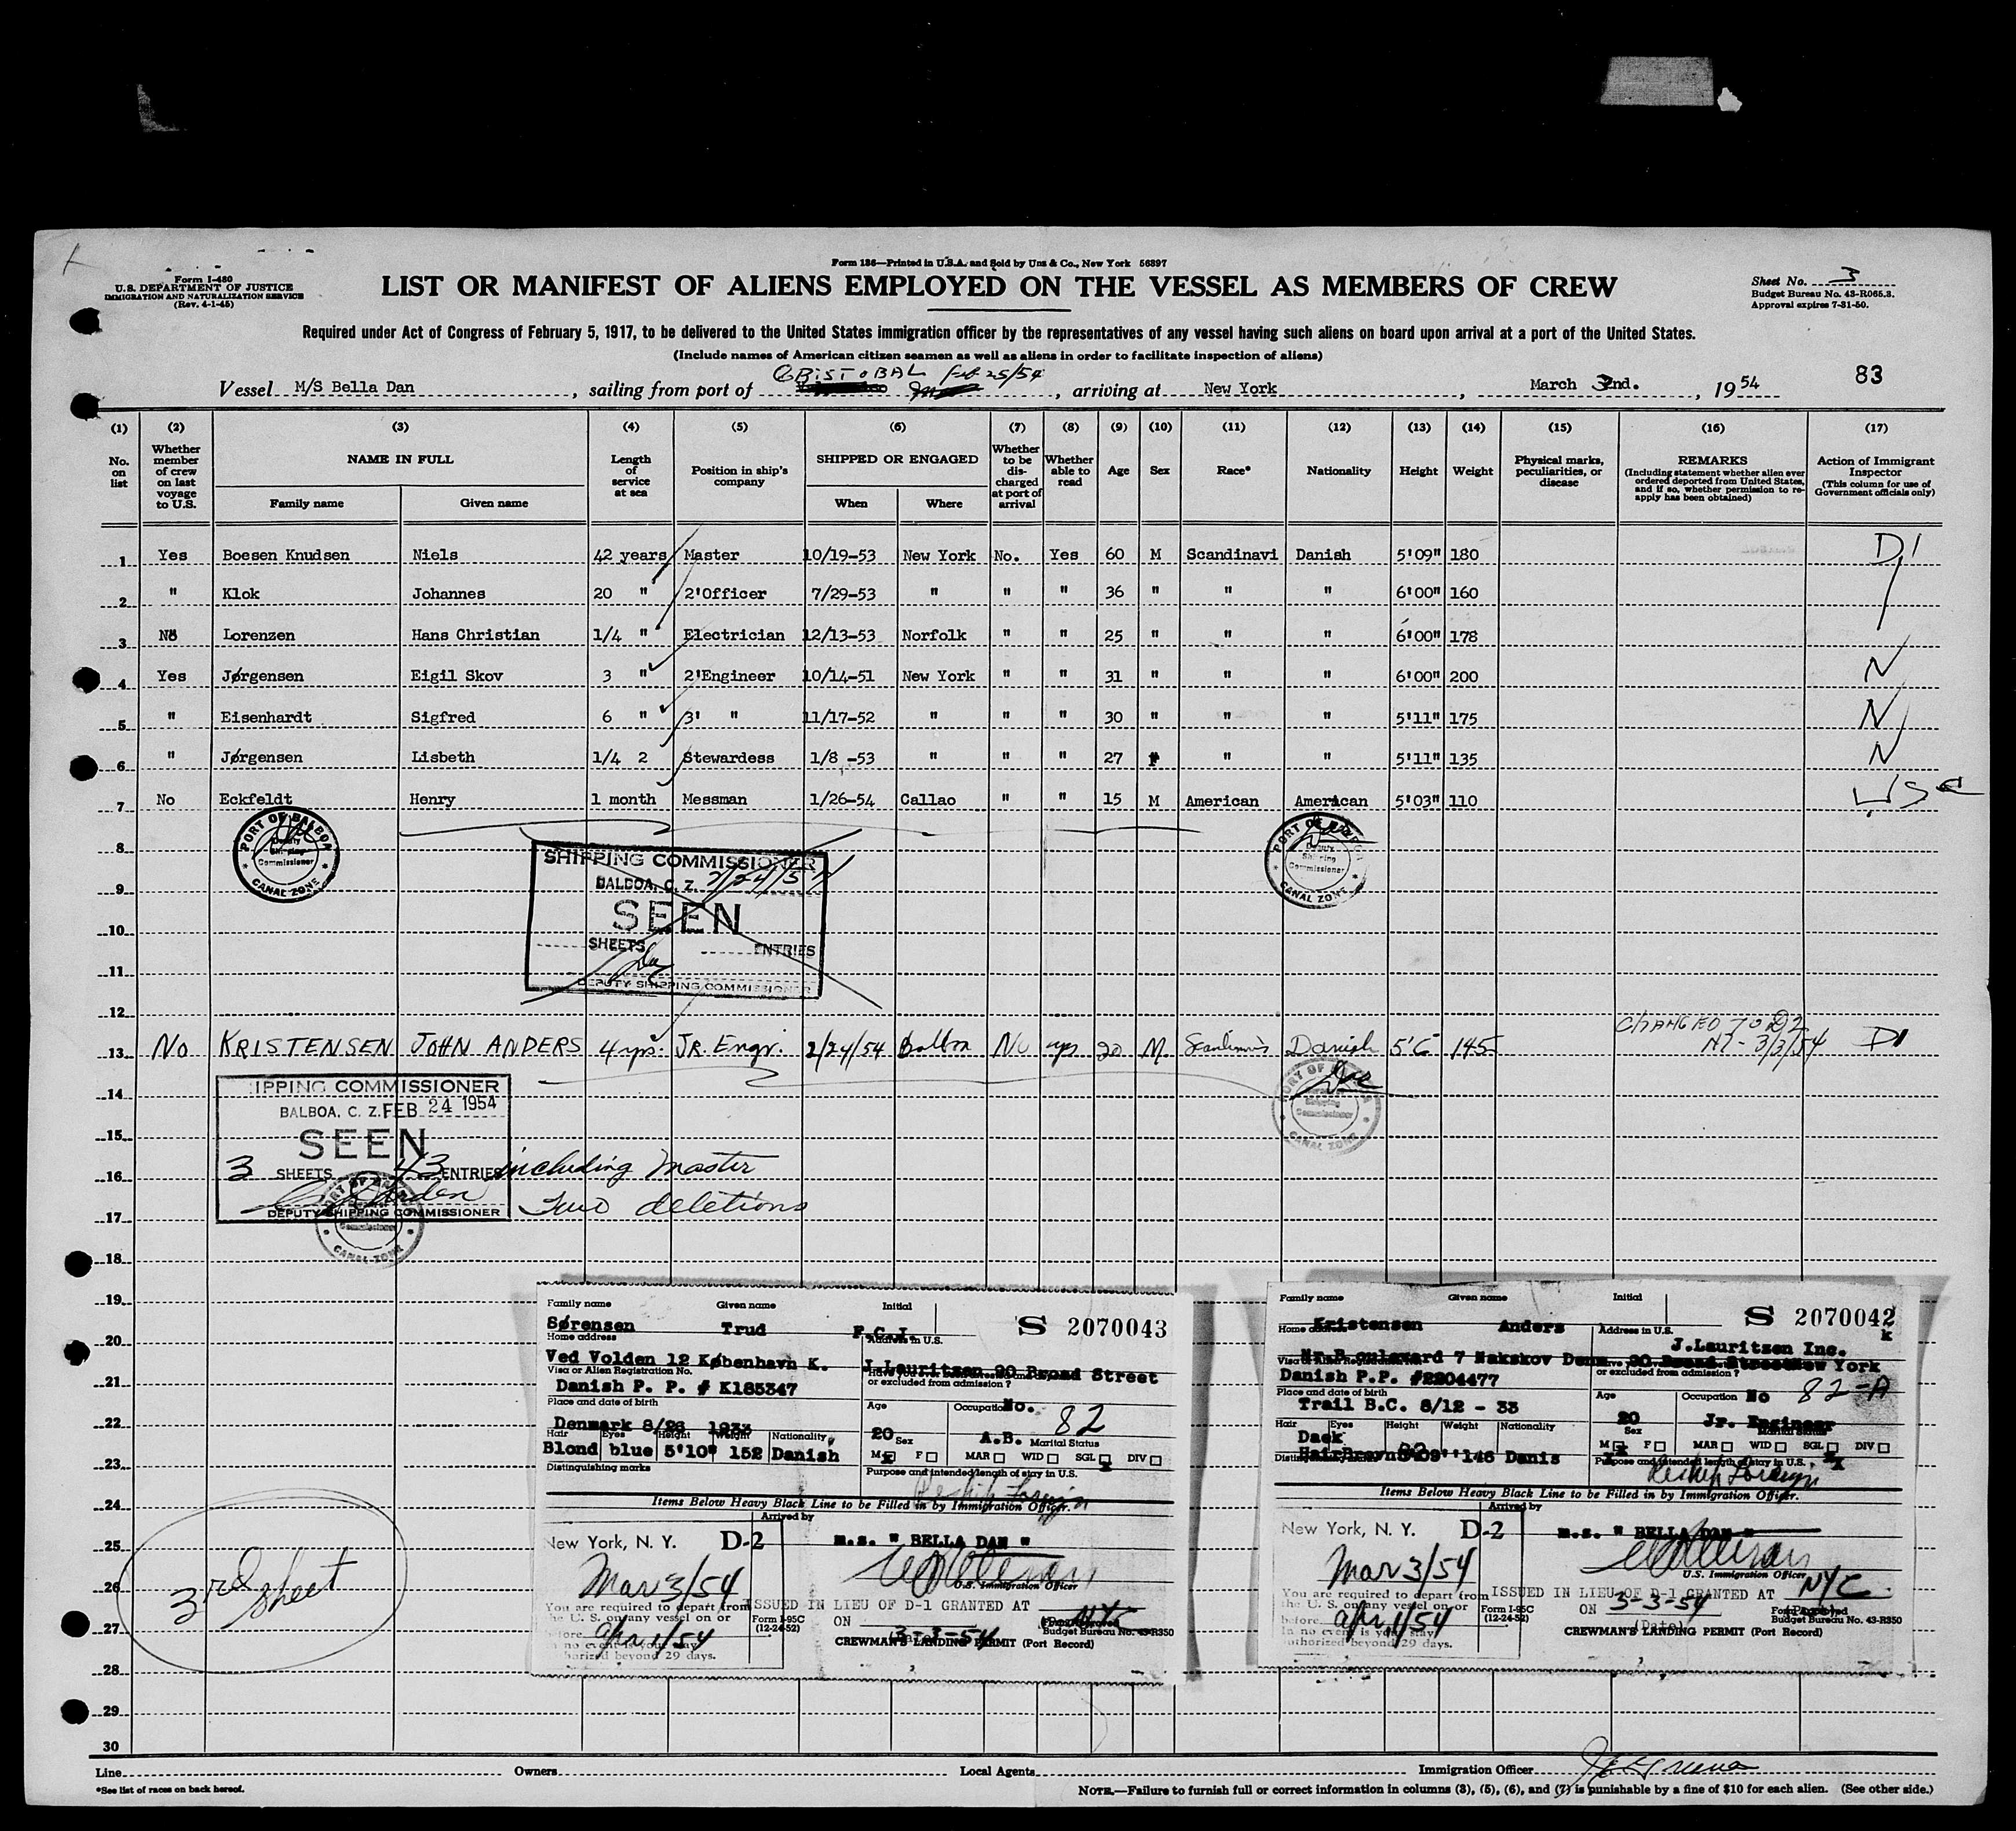 Form I-480
U.S. DEPARTMENT OF JUSTICE
IMMIGRATION AND NATURALIZATION SERVICE
(Rev. 4-1-45)
Form 136—Printed in U.S.A. and Sold by Unz & Co., New York 56897
LIST OR MANIFEST OF ALIENS EMPLOYED ON THE VESSEL AS MEMBERS OF CREW
Sheet No. 3
Budget Bureau No. 43-R065.3.
Approval expires 7-31-50.
Required under Act of Congress of February 5, 1917, to be delivered to the United States immigration officer by the representatives of any vessel having such aliens on board upon arrival at a port of the United States.
(Include names of American citizen seamen as well as aliens in order to facilitate inspection of aliens)
Vessel M/S Bella Dan, sailing from port of CRISTOBAL Feb 25/54, arriving at New York, March 2nd., 19 54
83
(1) (2) (3) (4) (5) (6) (7) (8) (9) (10) (11) (12) (13) (14) (15) (16) (17)
No. on list
Whether member of crew on last voyage to U.S.
NAME IN FULL
Family name Given name
Length of service at sea
Position in ship's company
SHIPPED OR ENGAGED
When Where
Whether to be discharged at port of arrival
Whether able to read
Age
Sex
Race*
Nationality
Height
Weight
Physical marks, peculiarities, or disease
REMARKS
(Including statement whether alien ever ordered deported from United States, and if so, whether permission to reapply has been obtained)
Action of Immigrant Inspector
(This column for use of Government officials only)
1 Yes Boesen Knudsen Niels 42 years Master 10/19-53 New York No. Yes 60 M Scandinavi Danish 5'09" 180 D1
2 " Klok Johannes 20 " 2'Officer 7/29-53 " " " 36 " " " 6'00" 160
3 No Lorenzen Hans Christian 1/4 " Electrician 12/13-53 Norfolk " " 25 " " " 6'00" 178
4 Yes Jørgensen Eigil Skov 3 " 2'Engineer 10/14-51 New York " " 31 " " " 6'00" 200 N
5 " Eisenhardt Sigfred 6 " 3' " 11/17-52 " " " 30 " " " 5'11" 175 N
6 " Jørgensen Lisbeth 1/4 2 Stewardess 1/8 -53 " " " 27 F " " 5'11" 135 N
7 No Eckfeldt Henry 1 month Messman 1/26-54 Callao " " 15 M American American 5'03" 110 USC
PORT OF BALBOA
Deputy Shipping Commissioner
CANAL ZONE
PORT OF BALBOA
Deputy Shipping Commissioner
CANAL ZONE
8
SHIPPING COMMISSIONER
BALBOA, C. Z. 2/24/54
9
SEEN
10
SHEETS ENTRIES
11
DEPUTY SHIPPING COMMISSIONER
12
CHANGED TO D2
NY - 3/3/54
13 No KRISTENSEN JOHN ANDERS 4 yrs. JR. Engr. 2/24/54 Balboa No yes 20 M. Danish 5'6 145 D1
PORT OF BALBOA
CANAL ZONE
14
IPPING COMMISSIONER
BALBOA, C. Z. FEB 24 1954
15
SEEN
16
3 SHEETS 43 ENTRIES including Master
17
DEPUTY SHIPPING COMMISSIONER Two deletions
CANAL ZONE
18
19
20
21
22
23
24
25
26
27
28
29
30
3rd sheet
Family name Given name Initial
Sørensen Trud F.C.I.
S 2070043
Home address Address in U.S.
Ved Volden 12 København K. J.Lauritzen 90 Broad Street
Visa or Alien Registration No. Have you ever been arrested and or excluded from admission?
Danish P. P. # K185347 No.
Place and date of birth Age Occupation
Denmark 8/26 1933 20 A.B. 82
Hair Eyes Height Weight Nationality
Blond blue 5'10" 152 Danish
Sex M F Marital Status MAR WID SGL DIV
Distinguishing marks
Purpose and intended length of stay in U.S.
Reship Foreign
Items Below Heavy Black Line to be Filled in by Immigration Officer.
Arrived by
New York, N. Y. D-2 m.s. " BELLA DAN "
Mar 3/54
U.S. Immigration Officer
You are required to depart from the U. S. on any vessel on or before Apr 1/54
in no event is your stay authorized beyond 29 days.
Form I-95C
(12-24-52)
ISSUED IN LIEU OF D-1 GRANTED AT NYC
ON 3-3-54
Budget Bureau No. 43-R350
CREWMAN'S LANDING PERMIT (Port Record)
Family name Given name Initial
Kristensen Anders
S 2070042
Home address Address in U.S.
J.Lauritzen Inc.
Boulevard 7 Nakskov Denm 90 Broad Street New York
or excluded from admission?
Danish P.P. #2204477 No 82-A
Place and date of birth Age Occupation
Trail B.C. 8/12 - 33 20 Jr. Engineer
Hair Eyes Height Weight Nationality
146 Danis
Sex M F Marital Status MAR WID SGL DIV
Purpose and intended length of stay in U.S.
Reship Foreign
Items Below Heavy Black Line to be Filled in by Immigration Officer.
Arrived by
New York, N. Y. D-2 m.s. " BELLA DAN "
Mar 3/54
U.S. Immigration Officer
You are required to depart from the U. S. on any vessel on or before Apr 1/54
in no event is your stay authorized beyond 29 days.
Form I-95C
(12-24-52)
ISSUED IN LIEU OF D-1 GRANTED AT NYC
ON 3-3-54
Form Approved
Budget Bureau No. 43-R350
CREWMAN'S LANDING PERMIT (Port Record)
Line Owners Local Agents Immigration Officer
*See list of races on back hereof.
NOTE.—Failure to furnish full or correct information in columns (3), (5), (6), and (7) is punishable by a fine of $10 for each alien. (See other side.)